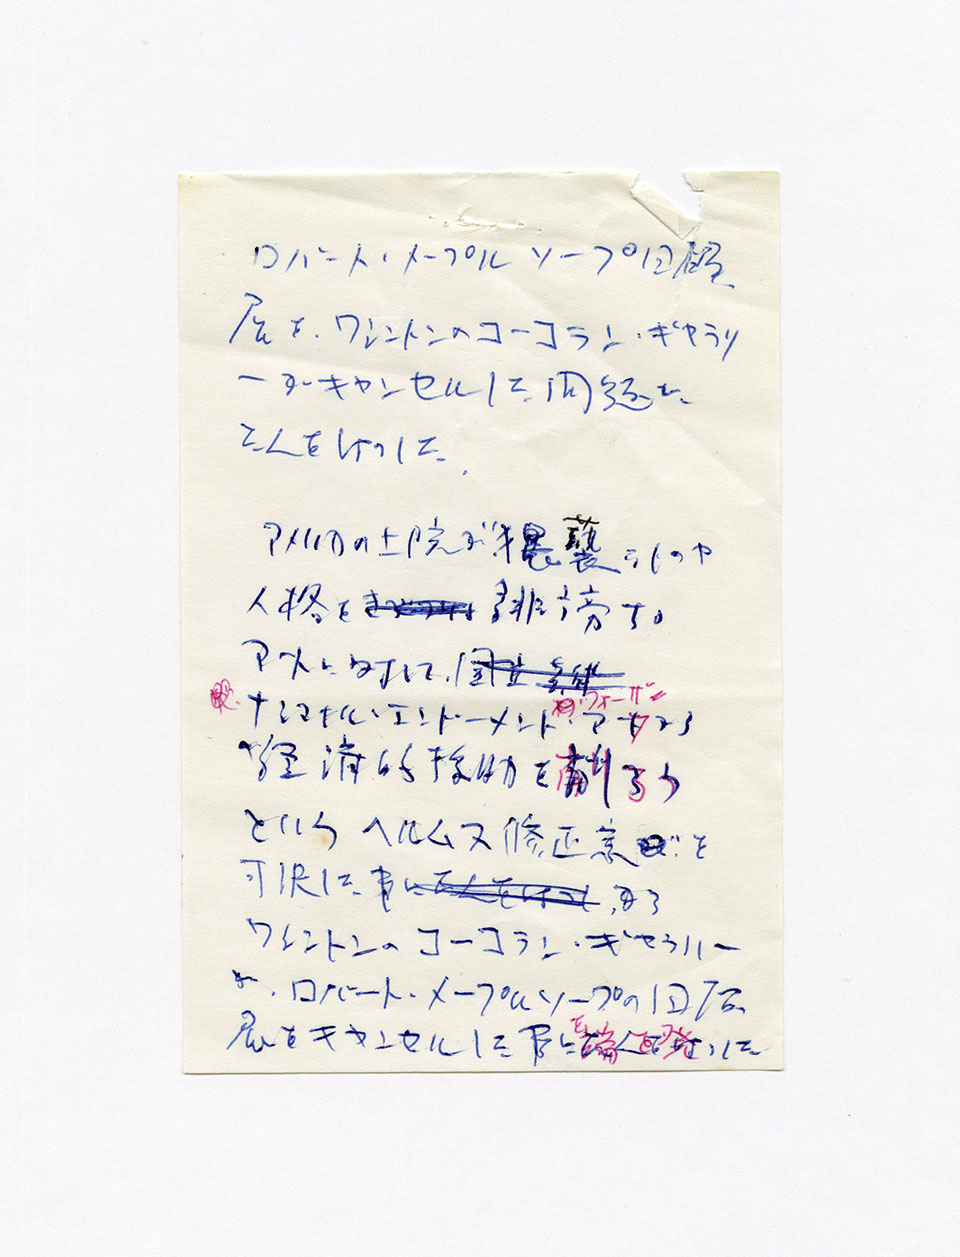 ロバート・メープルソープ回顧
展を、ワシントンのコーコラン・ギャラリ
ーがキャンセルした問題に
たんをはっした。
アメリカの上院が猥褻なものや
人格を 誹謗する
アートに対して、国立
ナショナル・エンドーメント・フォー・ザ・アーツから
経済的援助を削ろう
というヘルムス修正案を
可決した事に たんをはっし、
ワシントンのコーコラン・ギャラリー
が、ロバート・メープルソープの回顧
展をキャンセルした事に端を発した